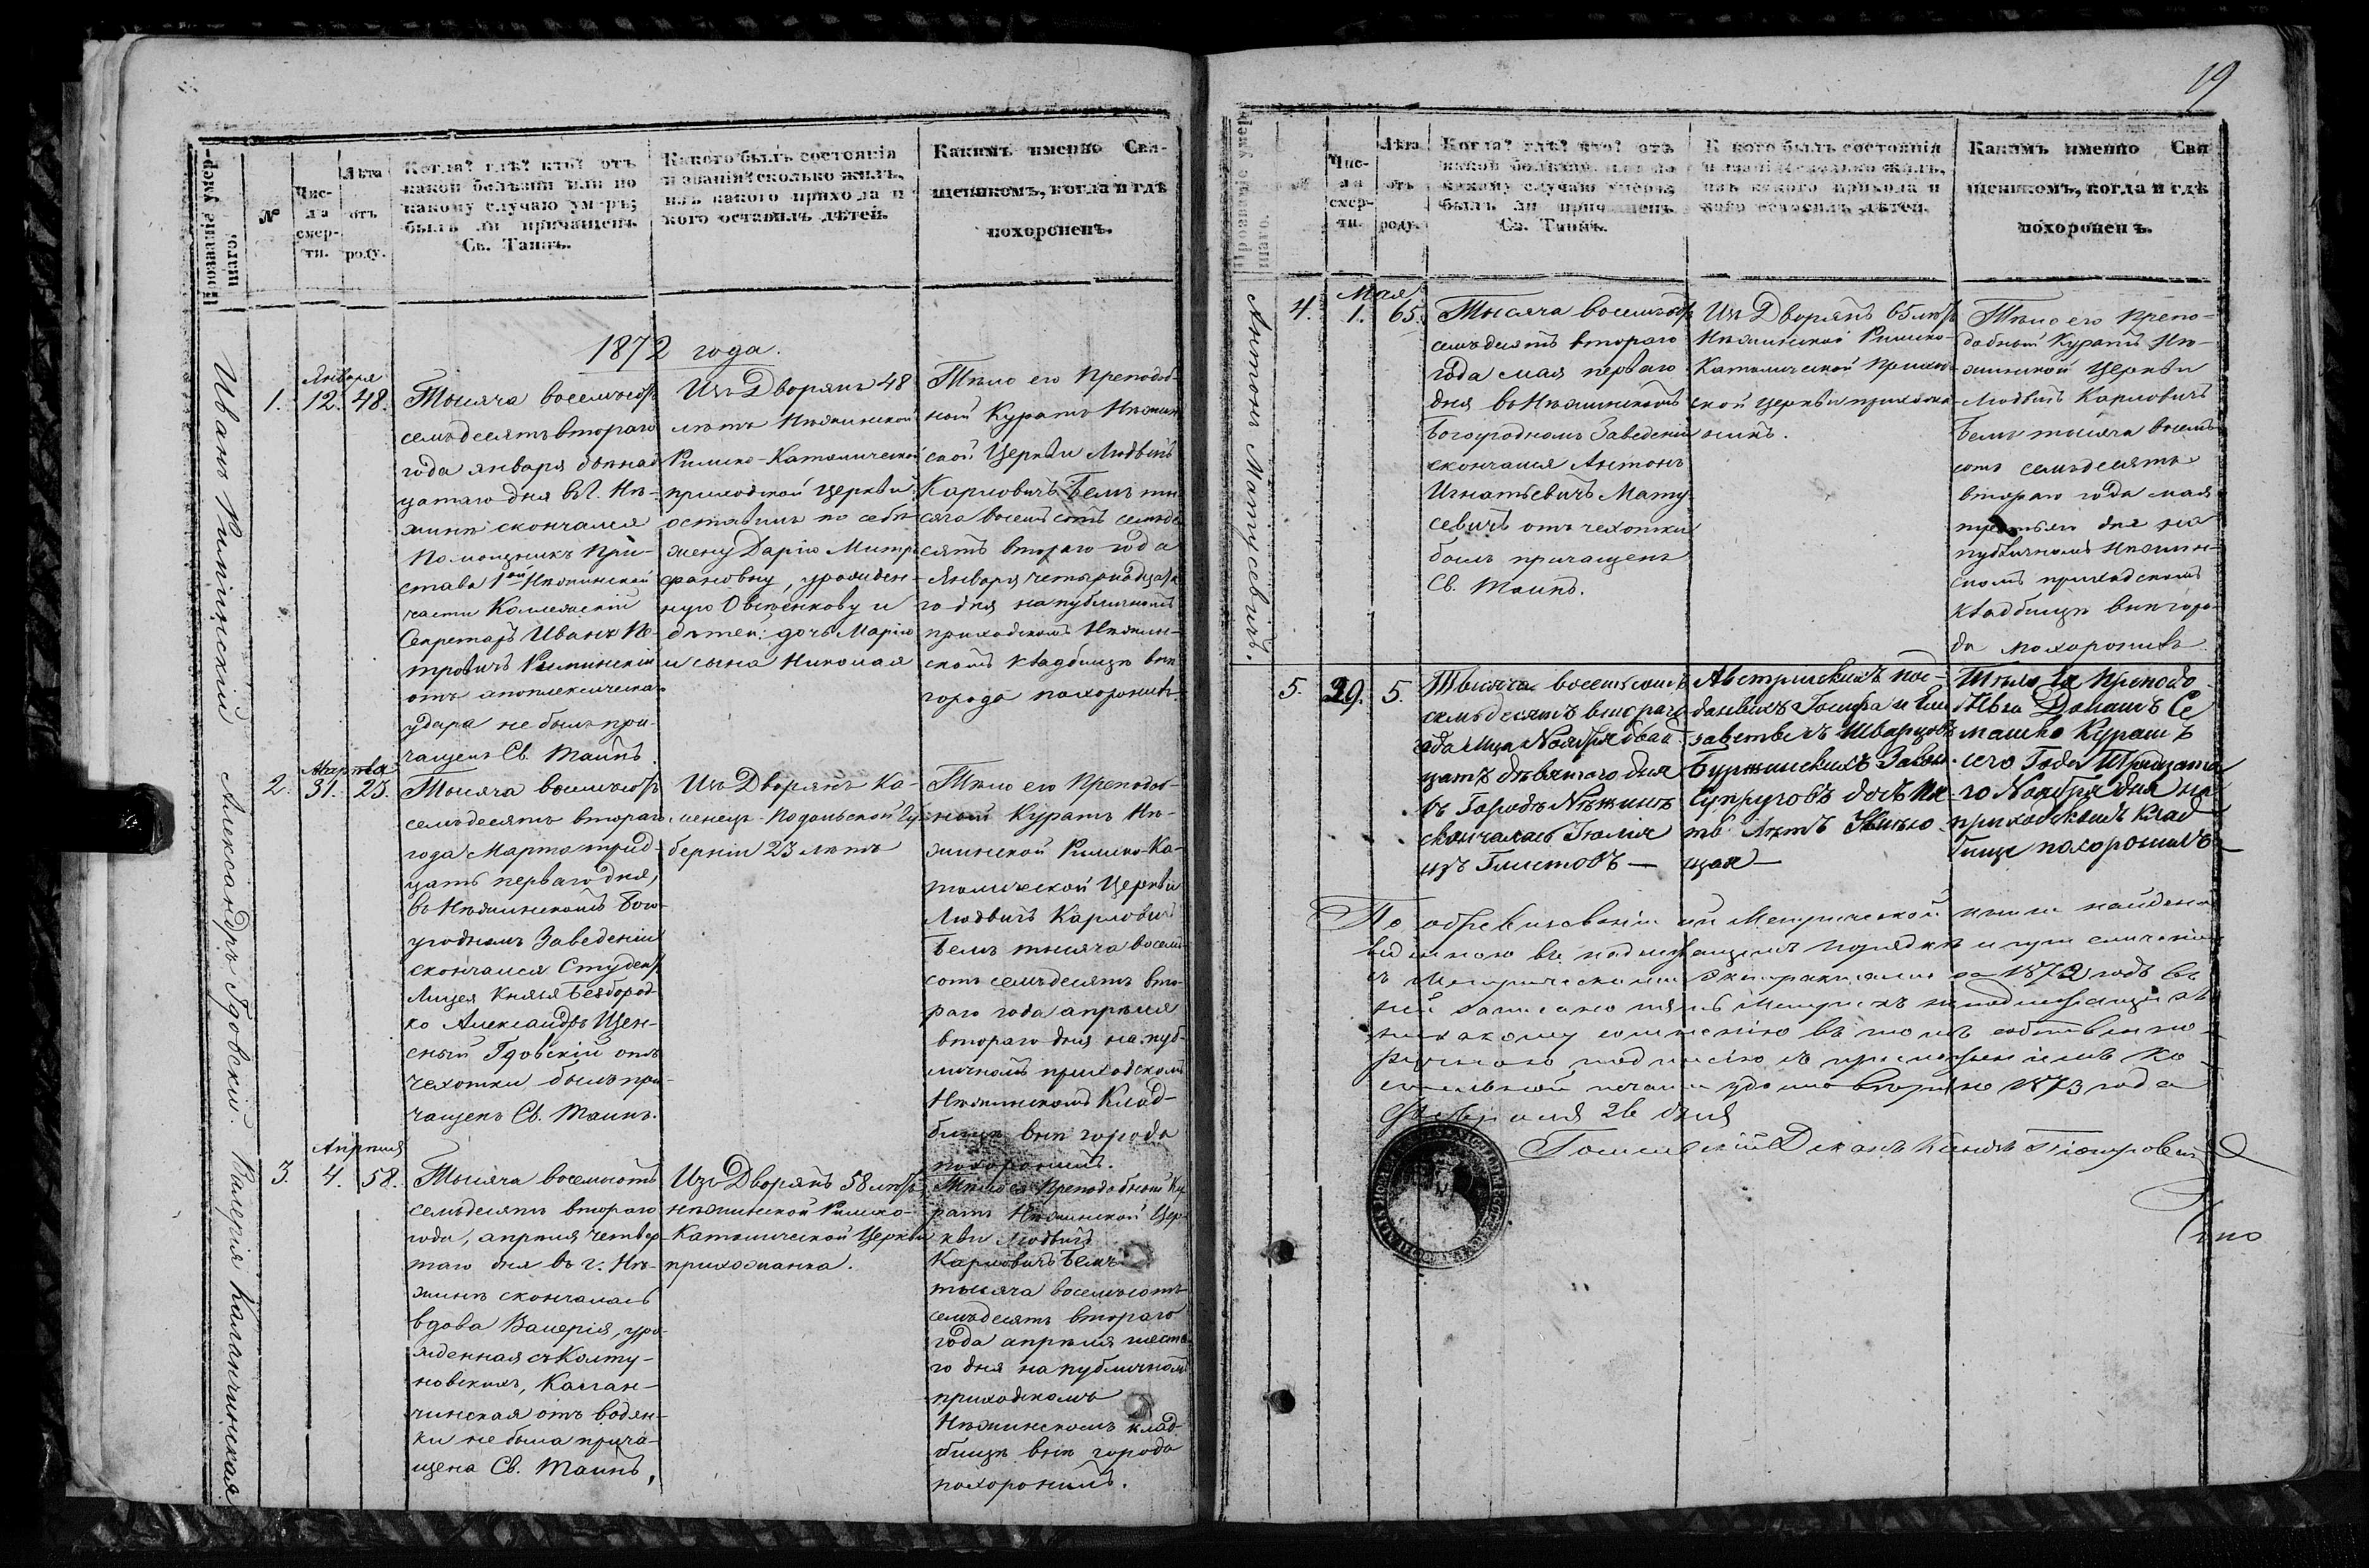 19
Прозваніе умер-
шаго.
№
Чис-
ла
смер-
ти.
Лѣта
отъ
роду.
Когда? гдѣ? кто? отъ
какой болѣзни или по
какому случаю умеръ;
былъ ли причащенъ
Св. Таинъ.
Какого былъ состоянія
и званія? сколько жилъ,
изъ какого прихода и
кого оставилъ дѣтей.
Какимъ именно Свя-
щенникомъ, когда и гдѣ
похороненъ.
1872 года.
Иванъ Рипинскій
1.
Января
12.
48.
Тысяча восемьсотъ
семьдесятъ втораго
года января двѣнад
цатаго дня въ г. Нѣ-
жинѣ скончался
Помощникъ При-
става 1ой Нѣжинской
части Коллежскій
Секретарь Иванъ Пе-
тровичъ Рипинскій
отъ апоплексическа
удара не былъ при-
чащенъ Св. Таинъ.
Изъ Дворянъ 48
лѣтъ Нѣжинской
Римско-Католической
приходской церкви
оставилъ по себѣ
жену Дарію Митро
фановну, урожден-
ную Овсѣенкову и
дѣтей: дочь Марію
и сына Николая
Тѣло его Преподоб
ный Куратъ Нѣжин
ской Церкви Людвигъ
Карловичъ Белъ ты
сяча восемьсотъ семьде
сятъ втораго года
Января четырнадцата
го дня на публичномъ
приходскомъ Нѣжин-
скомъ кладбищѣ внѣ
города похоронилъ.
Александръ Гдовскій.
2.
Марта
31.
23.
Тысяча восемьсотъ
семьдесятъ втораго
года Марта трид
цать перваго дня,
въ Нѣжинскомъ Бого-
угодномъ Заведеніи
скончался Студентъ
Лицея Князя Безбород-
ко Александръ Щен-
сный Гдовскій отъ
чехотки былъ при-
чащенъ Св. Таинъ.
Изъ Дворянъ Ка-
менецъ-Подольской Гу-
берніи 23 лѣтъ
Тѣло его Преподоб-
ный Куратъ Нѣ-
жинской Римско-Ка-
толической Церкви
Людвигъ Карловичъ
Белъ тысяча восемь
сотъ семьдесятъ вто-
раго года апрѣля
втораго дня на пуб-
личномъ приходскомъ
Нѣжинскомъ Клад-
бищѣ внѣ города
похоронилъ.
Валерія Калачинская
3.
Апрѣля
4.
58.
Тысяча восемьсотъ
семьдесятъ втораго
года, апрѣля четвер-
таго дня въ г. Нѣ-
жинѣ скончалась
вдова Валерія, уро-
жденная съ Колту-
новскихъ, Калган-
чинская отъ водян-
ки не была прича-
щена Св. Таинъ,
Изъ Дворянъ 58 лѣтъ
нѣжинской Римско-
Католической Церкви
прихожанка.
Тѣло ея Преподобный Ку
ратъ Нѣжинской Цер
кви Людвигъ
Карловичъ Белъ
тысяча восемьсотъ
семьдесятъ втораго
года апрѣля шеста
го дня на публичномъ
приходскомъ
Нѣжинскомъ клад-
бищѣ внѣ города
похоронилъ.
Прозваніе умер-
шаго.
№
Чис-
ла
смер-
ти.
Лѣта
отъ
роду.
Когда? гдѣ? кто? отъ
какой болѣзни или по
какому случаю умеръ;
былъ ли причащенъ
Св. Таинъ.
Какого былъ состоянія
и званія? сколько жилъ,
изъ какого прихода и
кого оставилъ дѣтей.
Какимъ именно Свя
щенникомъ, когда и гдѣ
похороненъ.
Антонъ Матусевичъ.
4.
Мая
1.
65.
Тысяча восемьсотъ
семьдесятъ втораго
года мая перваго
дня въ Нѣжинскомъ
Богоугодномъ Заведеніи
скончался Антонъ
Игнатьевичъ Мату
севичъ отъ чехотки
былъ причащенъ
Св. Таинъ.
Изъ Дворянъ 65 лѣтъ
Нѣжинской Римско-
Католической Приход
ской церкви прихожа
нинъ.
Тѣло его Препо-
добный Куратъ Нѣ-
жинской Церкви
Людвигъ Карловичъ
Белъ тысяча восемь
сотъ семьдесятъ
втораго года мая
третьяго дня на
публичномъ Нѣжин-
скомъ приходскомъ
Кладбищѣ внѣ горо-
да похоронилъ.
5.
29.
5.
Тысяча восемьсотъ
семьдесятъ втораго
года Мца Ноября двад
цать девятаго дня
въ Городѣ Нѣжинѣ
скончалась Юлія
изъ Глистовъ —
Австрійскихъ под-
данныхъ Іосифа и Ели
заветы Шварцовъ
Супруговъ дочь Пя
ти Лѣтъ
щая —
Тѣло Ея Преподо
Донатъ Се
машко Куратъ
сего Года Тридцата
го Ноября дня на
приходскомъ Клад
бище похоронилъ
По обревизованіи сей Метрической книги найдена
веденною въ надлежащемъ порядкѣ и при сличеніи
съ Метрическими Экстрактами за 1872 годъ въ
ней записано пять Метрикъ неподлежащихъ
никакому сомненію въ томъ собственно-
ручною подписью съ приложеніемъ ко
стельной печати удостовѣряю 1873 года
Февраля 26 дня
Деканъ